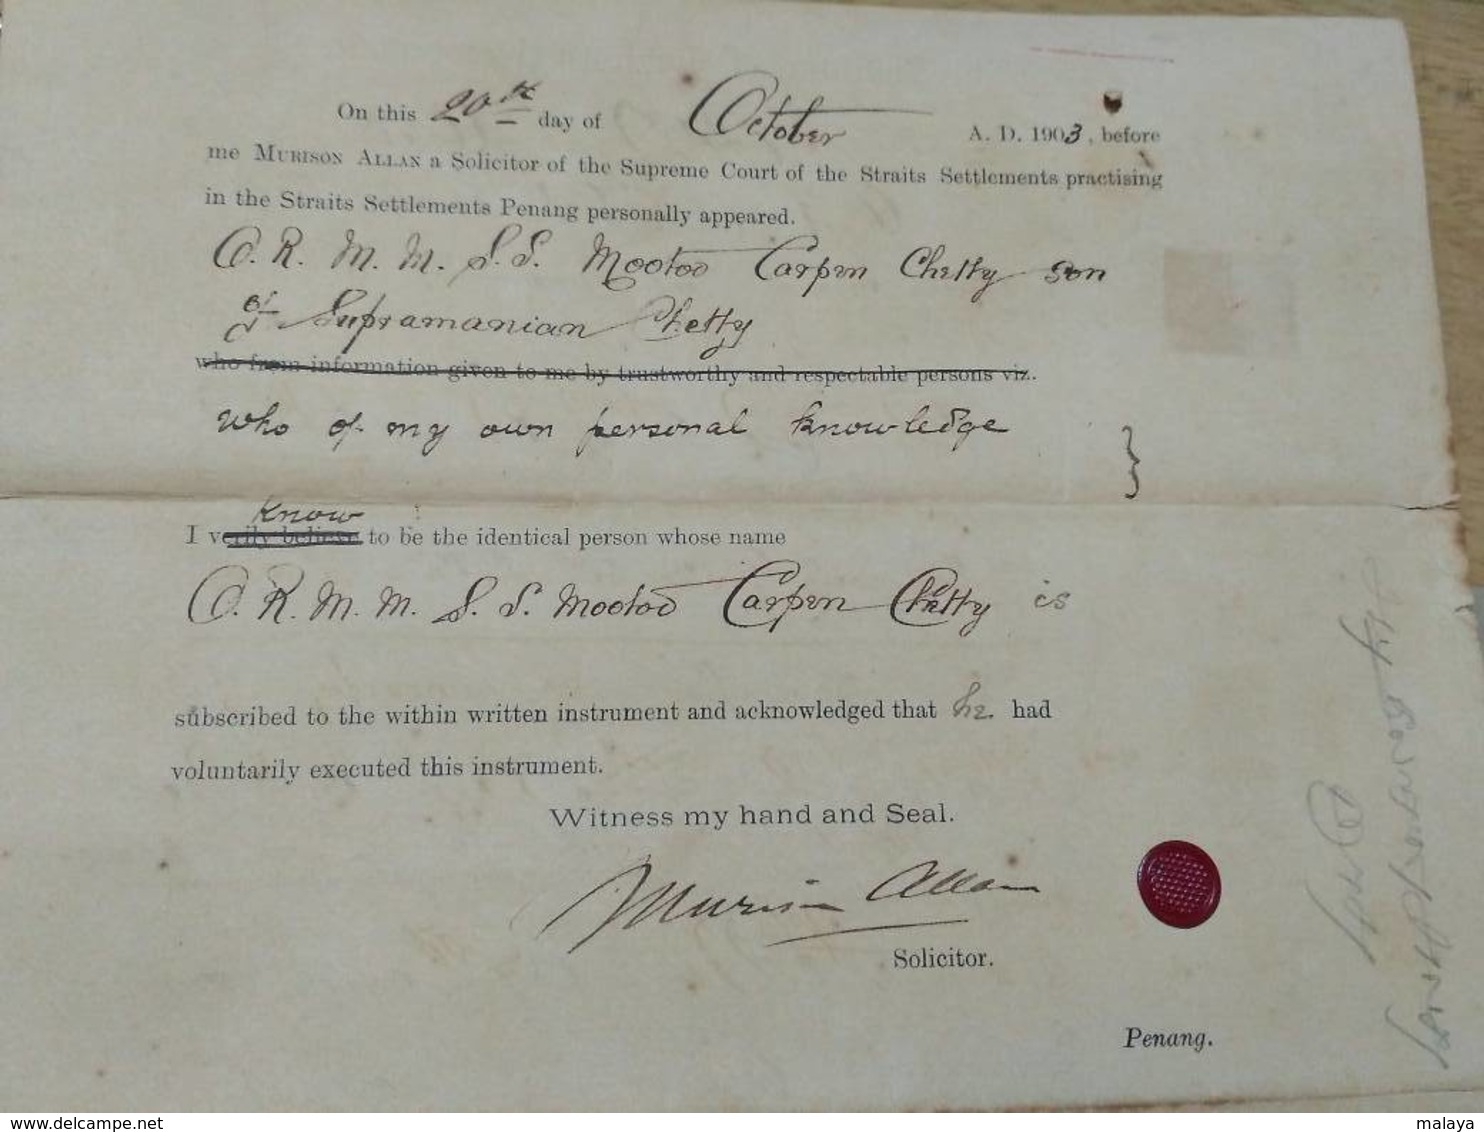 On this 20th day of October A. D. 1903, before
me MURISON ALLAN a Solicitor of the Supreme Court of the Straits Settlements practising
in the Straits Settlements Penang personally appeared.
O. R. M. M. S. S. Mootoo Carpen Chetty son
of Supramanian Chetty
who from information given to me by trustworthy and respectable persons viz.
who of my own personal knowledge
know
I verily believe to be the identical person whose name
O. R. M. M. S. S. Mootoo Carpen Chetty is
subscribed to the within written instrument and acknowledged that he had
voluntarily executed this instrument.
Witness my hand and Seal.
Murison Allan
Solicitor.
Penang.
www.delcampe.net
malaya